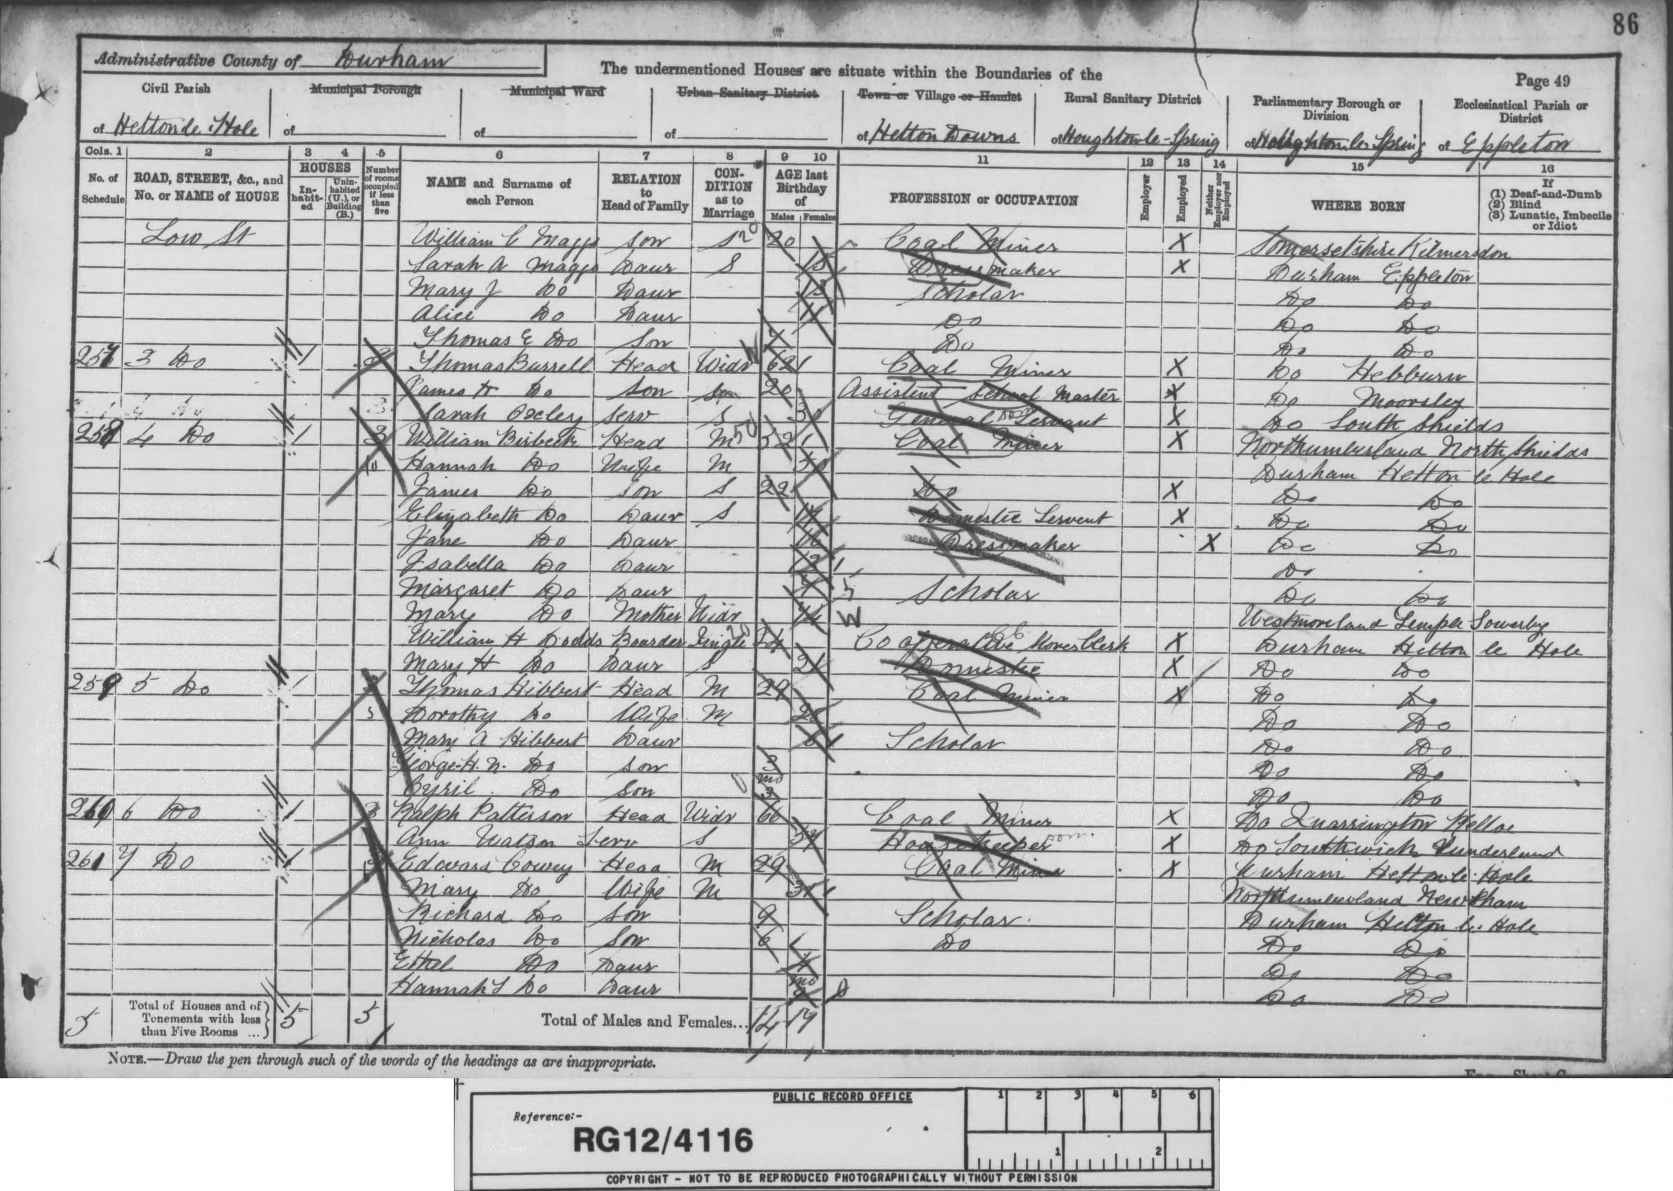 86
Administrative County of Durham
The undermentioned Houses are situate within the Boundaries of the
Page 49
Civil Parish
Municipal Borough
Municipal Ward
Urban Sanitary District
Town or Village or Hamlet
Rural Sanitary District
Parliamentary Borough or Division
Ecclesiastical Parish or District
of Hetton le Hole
of
of
of
of Hetton Downs
of Houghton le Spring
of Houghton le Spring
of Eppleton
Cols. 1 2 3 4 5 6 7 8 9 10 11 12 13 14 15 16
No. of Schedule
ROAD, STREET, &c., and No. or NAME of HOUSE
HOUSES
In-habit-ed
Unin-habited (U.), or Building (B.)
Number of rooms occupied if less than five
NAME and Surname of each Person
RELATION to Head of Family
CON-DITION as to Marriage
AGE last Birthday of
Males Females
PROFESSION or OCCUPATION
Employer
Employed
Neither Employer nor Employed
WHERE BORN
If
(1) Deaf-and-Dumb
(2) Blind
(3) Lunatic, Imbecile or Idiot
Low St William C Maggs Son S 20 Coal Miner X Somersetshire Kilmersdon
Sarah A Maggs Daur S Dressmaker X Durham Eppleton
Mary J Do Daur 13 Scholar Do Do
Alice Do Daur Do Do Do
Thomas E Do Son 7 Do Do Do
257 3 Do 1 Thomas Burrell Head Widr 62 Coal Miner X Do Hebburn
James H Do Son Son 20 Assistent School Master X Do Moorsley
Sarah Serv S General Servant X Do South Shields
258 4 Do 1 3 William Birbeck Head M 52 Coal Miner X Northumberland North Shields
Hannah Do Wife M Durham Hetton le Hole
James Do Son S 22 Do X Do Do
Elizabeth Do Daur S Domestic Servent X Do Do
Jane Do Daur Dressmaker X Do Do
Isabella Do Daur Do
Margaret Do Daur Scholar Do Do
Mary Do Mother Widr Westmoreland Temple Sowerby
William H Dodds Boarder Single Cooperative Clerk X Durham Hetton le Hole
Mary H Do Daur S Domestic X Do Do
259 5 Do 1 Thomas Hibbert Head M 29 Coal Miner X Do Do
Dorothy Do Wife M Do Do
Mary A Hibbert Daur Scholar Do Do
George H. N. Do Son 3 Do Do
Cyril Do Son mo Do Do
260 6 Do 1 3 Ralph Patterson Head Widr 60 Coal Miner X Do Quarrington Kelloe
Ann Watson Serv S Housekeeper dom. X Do Southwick Sunderland
261 7 Do 1 Edward Cowey Head M 29 Coal Miner X Durham Hetton le Hole
Mary Do Wife M Northumberland
Richard Do Son 9 Scholar Durham Hetton le Hole
Nicholas Do Son 6 Do Do Do
Ethel Do Daur Do Do
Hannah Do Daur mo Do Do
5 Total of Houses and of Tenements with less than Five Rooms ... 5 5 Total of Males and Females... 14 19
NOTE.—Draw the pen through such of the words of the headings as are inappropriate.
PUBLIC RECORD OFFICE
Reference:-
RG12/4116
1 2 3 4 5 6
1 2
COPYRIGHT - NOT TO BE REPRODUCED PHOTOGRAPHICALLY WITHOUT PERMISSION